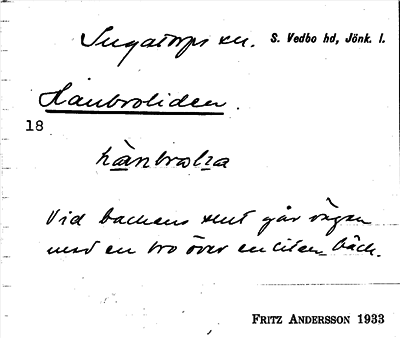 Ingatorps sn. S. Vedbo hd, Jönk. l.
Hänbroliden.
18
Vid backens slut går vägen
med en bro över en liten bäck.
FRITZ ANDERSSON 1933